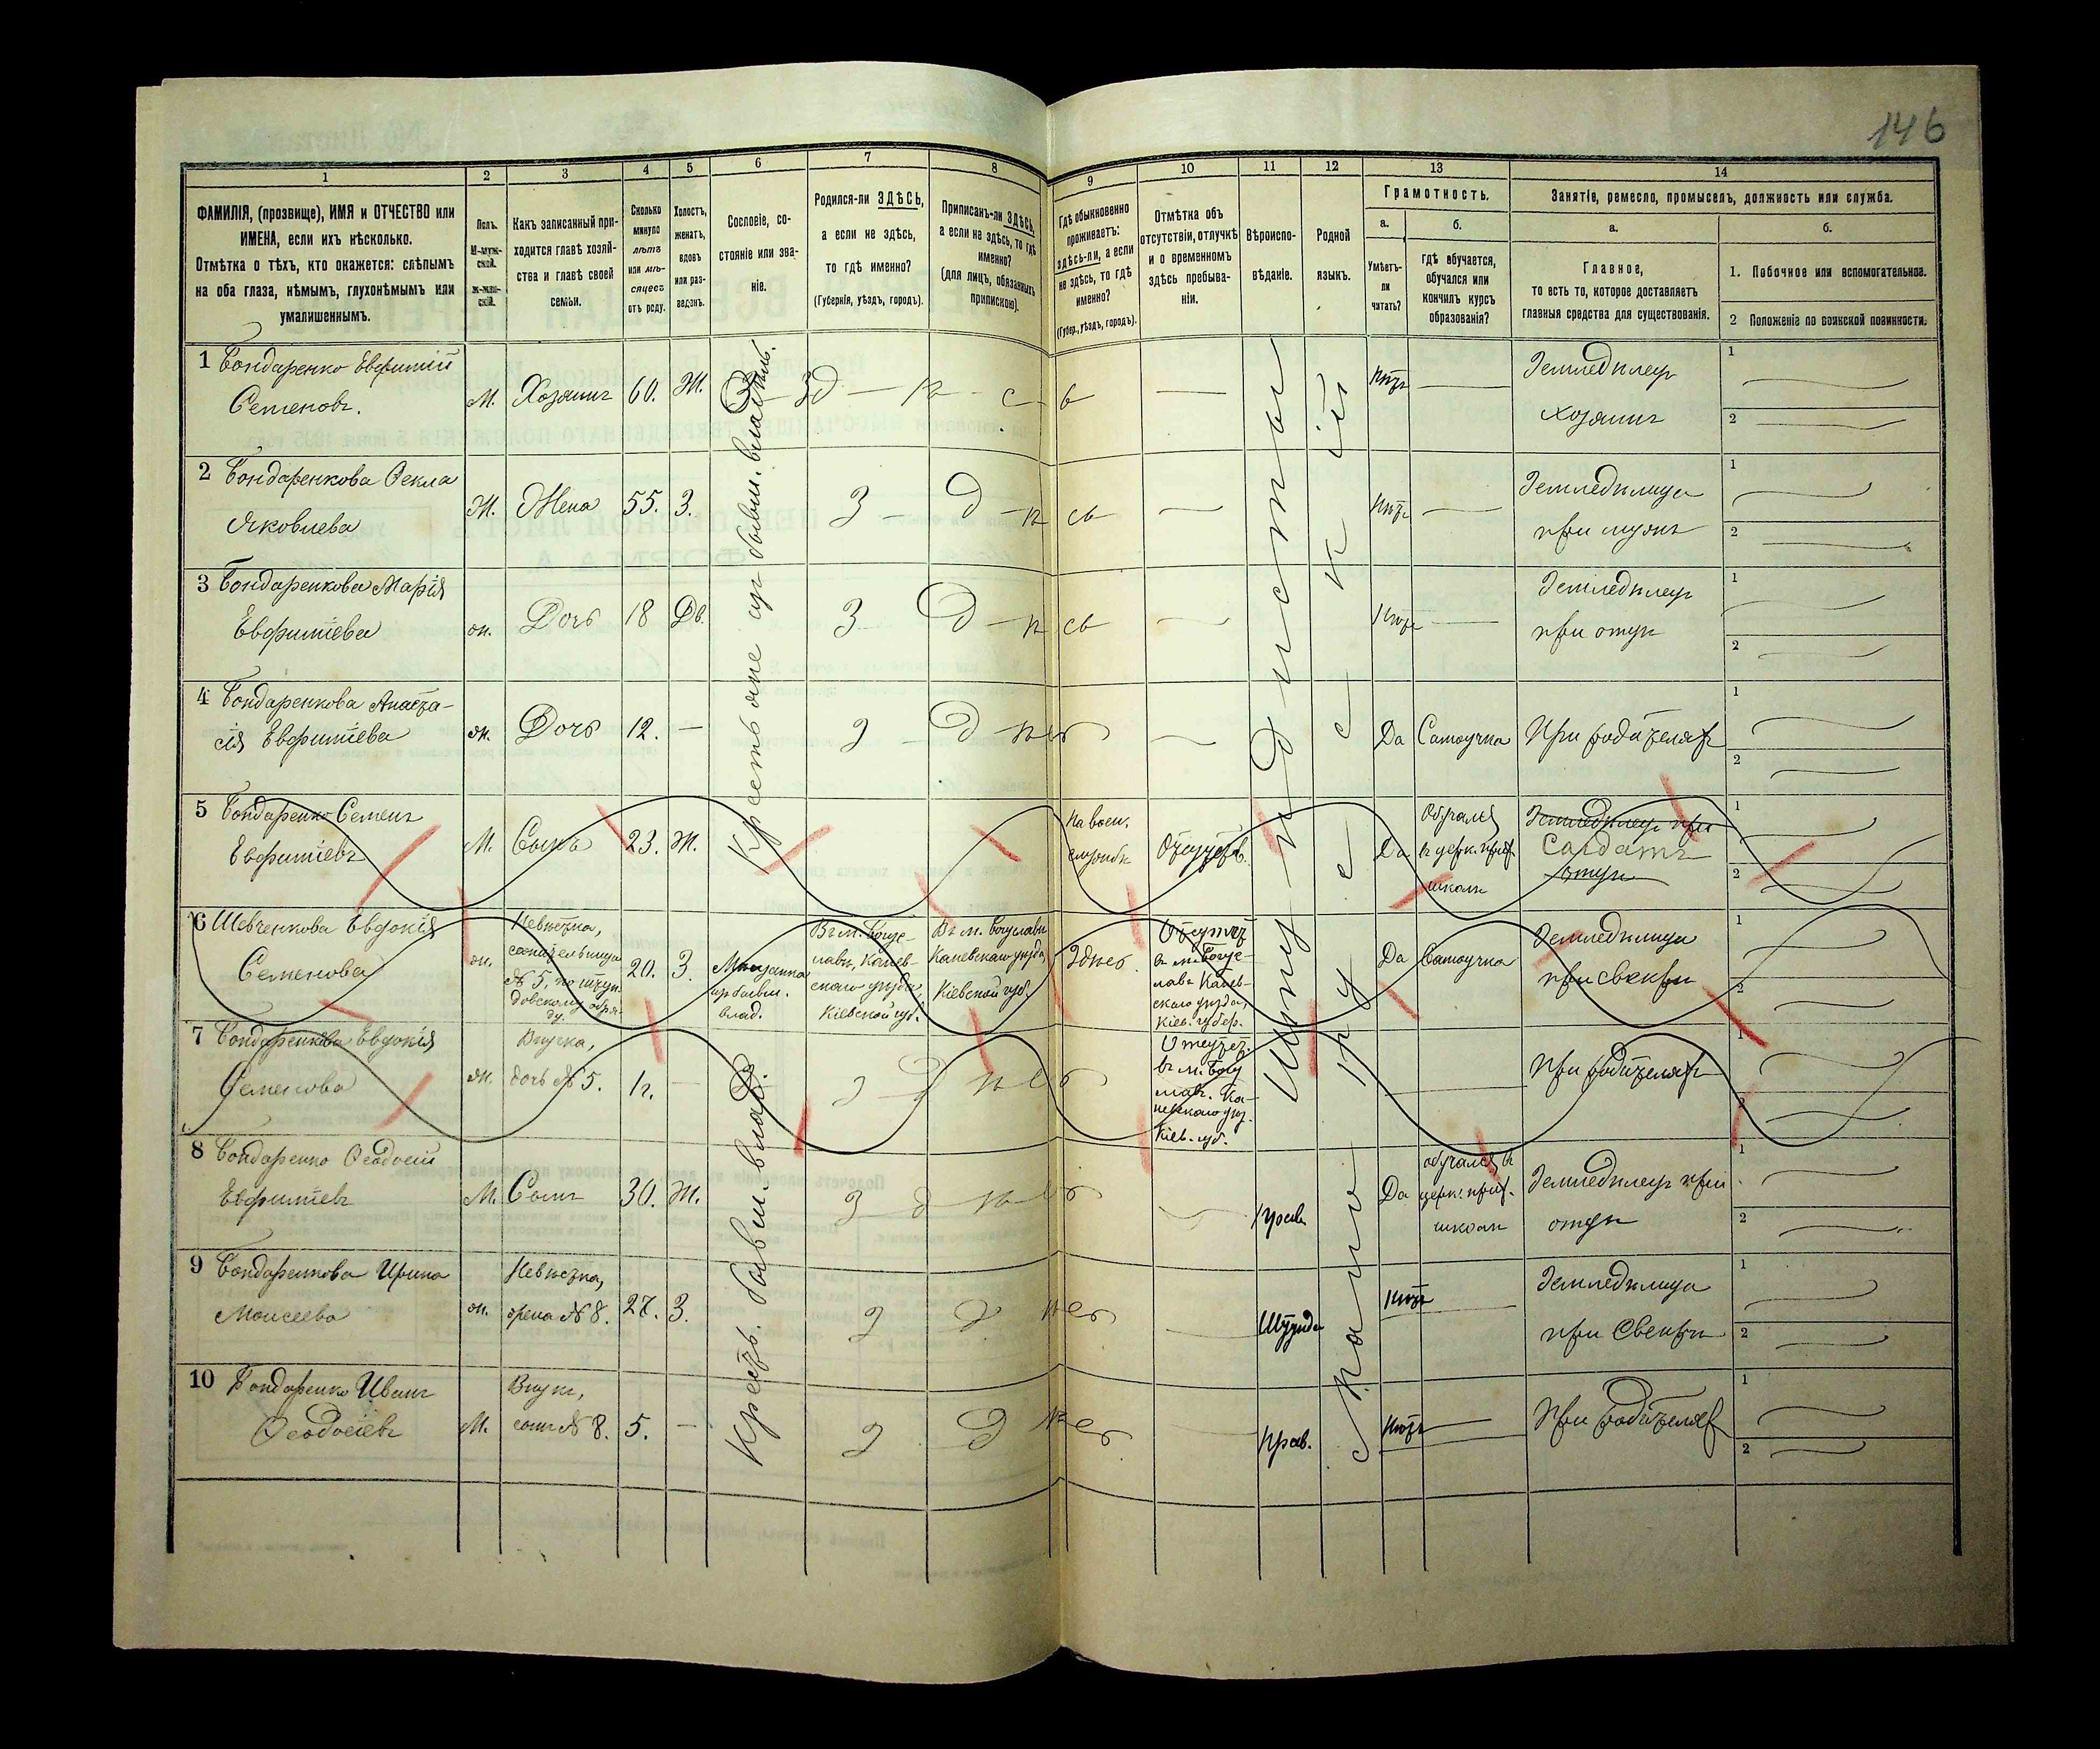 146
1
2
3
4
5
6
7
8
9
10
11
12
13
14
ФАМИЛІЯ, (прозвище), ИМЯ и ОТЧЕСТВО или
ИМЕНА, если ихъ нѣсколько.
Отмѣтка о тѣхъ, кто окажется: слѣпымъ
на оба глаза, нѣмымъ, глухонѣмымъ или
умалишеннымъ.
Полъ.
М-муж-
ской.
ж-жен-
скій.
Какъ записанный при-
ходится главѣ хозяй-
ства и главѣ своей
семьи.
Сколько
минуло
лѣтъ
или мѣ-
сяцевъ
отъ роду.
Холостъ,
женатъ,
вдовъ
или раз-
веденъ.
Сословіе, со-
стояніе или зва-
ніе.
Родился-ли ЗДѢСЬ,
а если не здѣсь,
то гдѣ именно?
(Губернія, уѣздъ, городъ).
Приписанъ-ли ЗДѢСЬ,
а если не здѣсь, то гдѣ
именно?
(для лицъ, обязанныхъ
припискою).
Гдѣ обыкновенно
проживаетъ:
здѣсь-ли, а если
не здѣсь, то гдѣ
именно?
(Губер., уѣздъ, городъ).
Отмѣтка объ
отсутствіи, отлучкѣ
и о временномъ
здѣсь пребыва-
ніи.
Вѣроиспо-
вѣданіе.
Родной
языкъ.
Грамотность.
а.
Умѣетъ-
ли
читать?
б.
гдѣ обучается,
обучался или
кончилъ курсъ
образованія?
Занятіе, ремесло, промыселъ, должность или служба.
а.
Главное,
то есть то, которое доставляетъ
главныя средства для существованія.
б.
1. Побочное или вспомогательное.
2 Положеніе по воинской повинности.
1 Бондаренко Евфимій
Семеновъ.
М.
Хозяинъ
60.
Ж.
Зд - ѣ - с - ь
Нѣтъ
Земледѣлецъ
хозяинъ
1
2
2 Бондаренкова Ѳекла
Яковлева
Ж.
Жена
55.
З.
З - д - ѣ сь
Нѣтъ
Земледѣлица
при мужѣ
1
2
3 Бондаренкова Марія
Евфиміева
ж.
Дочь
18
Дѣ.
З д - ѣ сь
Нѣтъ
Земледѣлец
при отцѣ
1
2
4 Бондаренкова Анаста-
сія Евфиміева
ж.
Дочь
12.
З - д ѣсь
Да
Самоучка
При родителях
1
2
Крестьяне изъ бывш. владѣл.
5 Бондаренко Семенъ
Евфиміевъ
М.
Сынъ
23.
Ж.
На воен.
службѣ
Отсутств.
Да
Обучался
в церк. прих.
школѣ
Земледѣлецъ при
Салдатъ
отцѣ
1
2
6 Шевченкова Евдокія
Семенова
ж.
Невѣстка,
сожительница
№ 5, по штун-
довскому обря-
ду.
20.
З.
Мѣщанка
изъ бывш.
влад.
Въ м. Богус-
лавѣ, Канев-
скаго уѣзда,
Кіевской губ.
Въ м. Богуславѣ
Каневскаго уѣзда,
Кіевской губ.
Здѣсь
Отсутст
в м. Богус-
лавѣ Канев-
скаго уѣзда,
Кіев. губер.
Да
Самоучка
Земледѣлица
при свекрѣ
1
2
7 Бондаренкова Евдокія
Семенова
ж.
Внучка,
дочь № 5.
1 г.
З д ѣсь
Отсутст.
въ м. Богу
славѣ. Ка-
невскаго уѣз.
Кіев. губ.
При родителях
1
2
Штундисты
8 Бондаренко Ѳеодосій
Евфиміевъ
М.
Сынъ
30.
Ж.
З д ѣсь
Прав.
Да
обучался в
церк. прих.
школѣ
Земледѣлецъ при
отцѣ
1
2
9 Бондаренкова Ирина
Моисеева
ж.
Невѣстка,
жена № 8.
27.
З.
З д ѣсь
Штунда
Нѣтъ
Земледѣлица
при свекрѣ
1
2
10 Бондаренко Иванъ
Ѳеодосіевъ
М.
Внукъ,
сынъ № 8.
5.
З Д ѣсь
Прав.
Нѣтъ
При родителях
1
2
Крест. бывш. влад.
Малорусскій